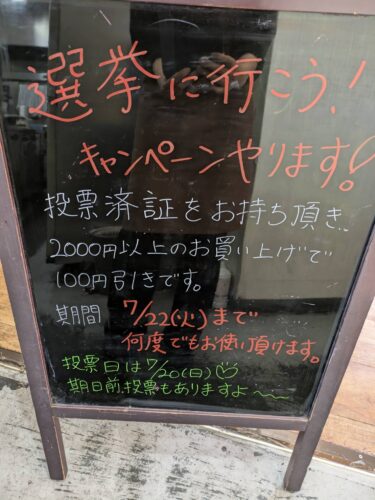 選挙に行こう!
キャンペーンやります。
投票済証をお持ち頂き、
2000円以上のお買い上げで
100円引きです。
期間 7/22(火)まで
何度でもお使い頂けます。
投票日は7/20(日)
期日前投票もありますよ〜〜